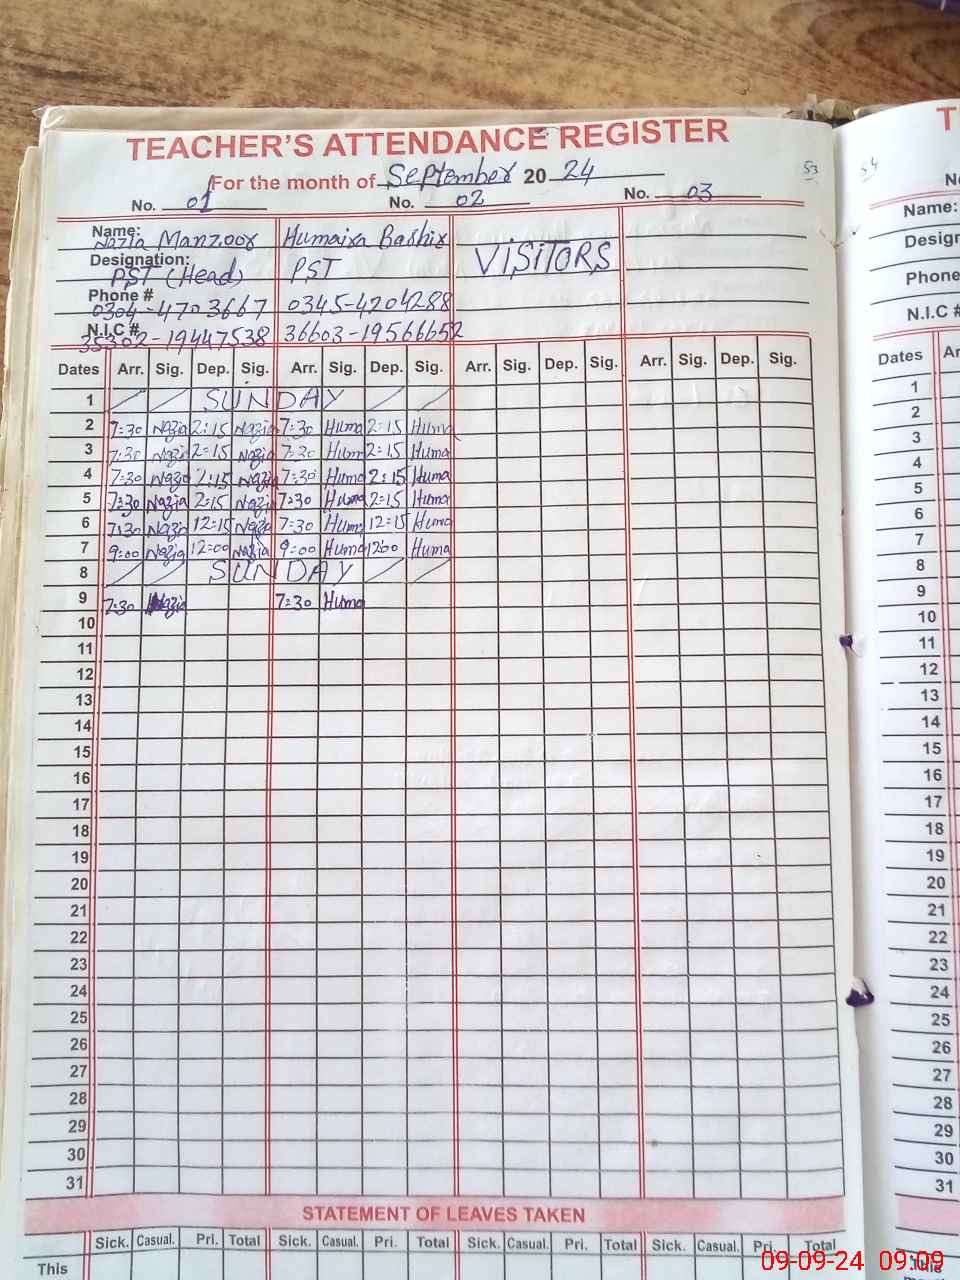 TEACHER'S ATTENDANCE REGISTER
For the month of September 20 24
53
No. 01 No. 02 No. 03
Name: Nazia Manzoor Humaira Bashir VISITORS
Designation: PST (Head) PST
Phone # 0304-4703667 0345-4204288
N.I.C # 35302-19447538 36603-19566652
Dates Arr. Sig. Dep. Sig. Arr. Sig. Dep. Sig. Arr. Sig. Dep. Sig. Arr. Sig. Dep. Sig.
1 SUNDAY
2 7:30 Nazia 2:15 Nazia 7:30 Huma 2:15 Huma
3 7:30 Nazia 2:15 Nazia 7:30 Huma 2:15 Huma
4 7:30 Nazia 2:15 Nazia 7:30 Huma 2:15 Huma
5 7:30 Nazia 2:15 Nazia 7:30 Huma 2:15 Huma
6 7:30 Nazia 12:15 Nazia 7:30 Huma 12:15 Huma
7 9:00 Nazia 12:00 Nazia 9:00 Huma 12:00 Huma
8 SUNDAY
9 7:30 Nazia 7:30 Huma
10
11
12
13
14
15
16
17
18
19
20
21
22
23
24
25
26
27
28
29
30
31
STATEMENT OF LEAVES TAKEN
Sick. Casual. Pri. Total Sick. Casual. Pri. Total Sick. Casual. Pri. Total Sick. Casual. Pri. Total
This
54
T
No
Name:
Design
Phone
N.I.C #
Dates Ar
1
2
3
4
5
6
7
8
9
10
11
12
13
14
15
16
17
18
19
20
21
22
23
24
25
26
27
28
29
30
31
This
09-09-24 09:09